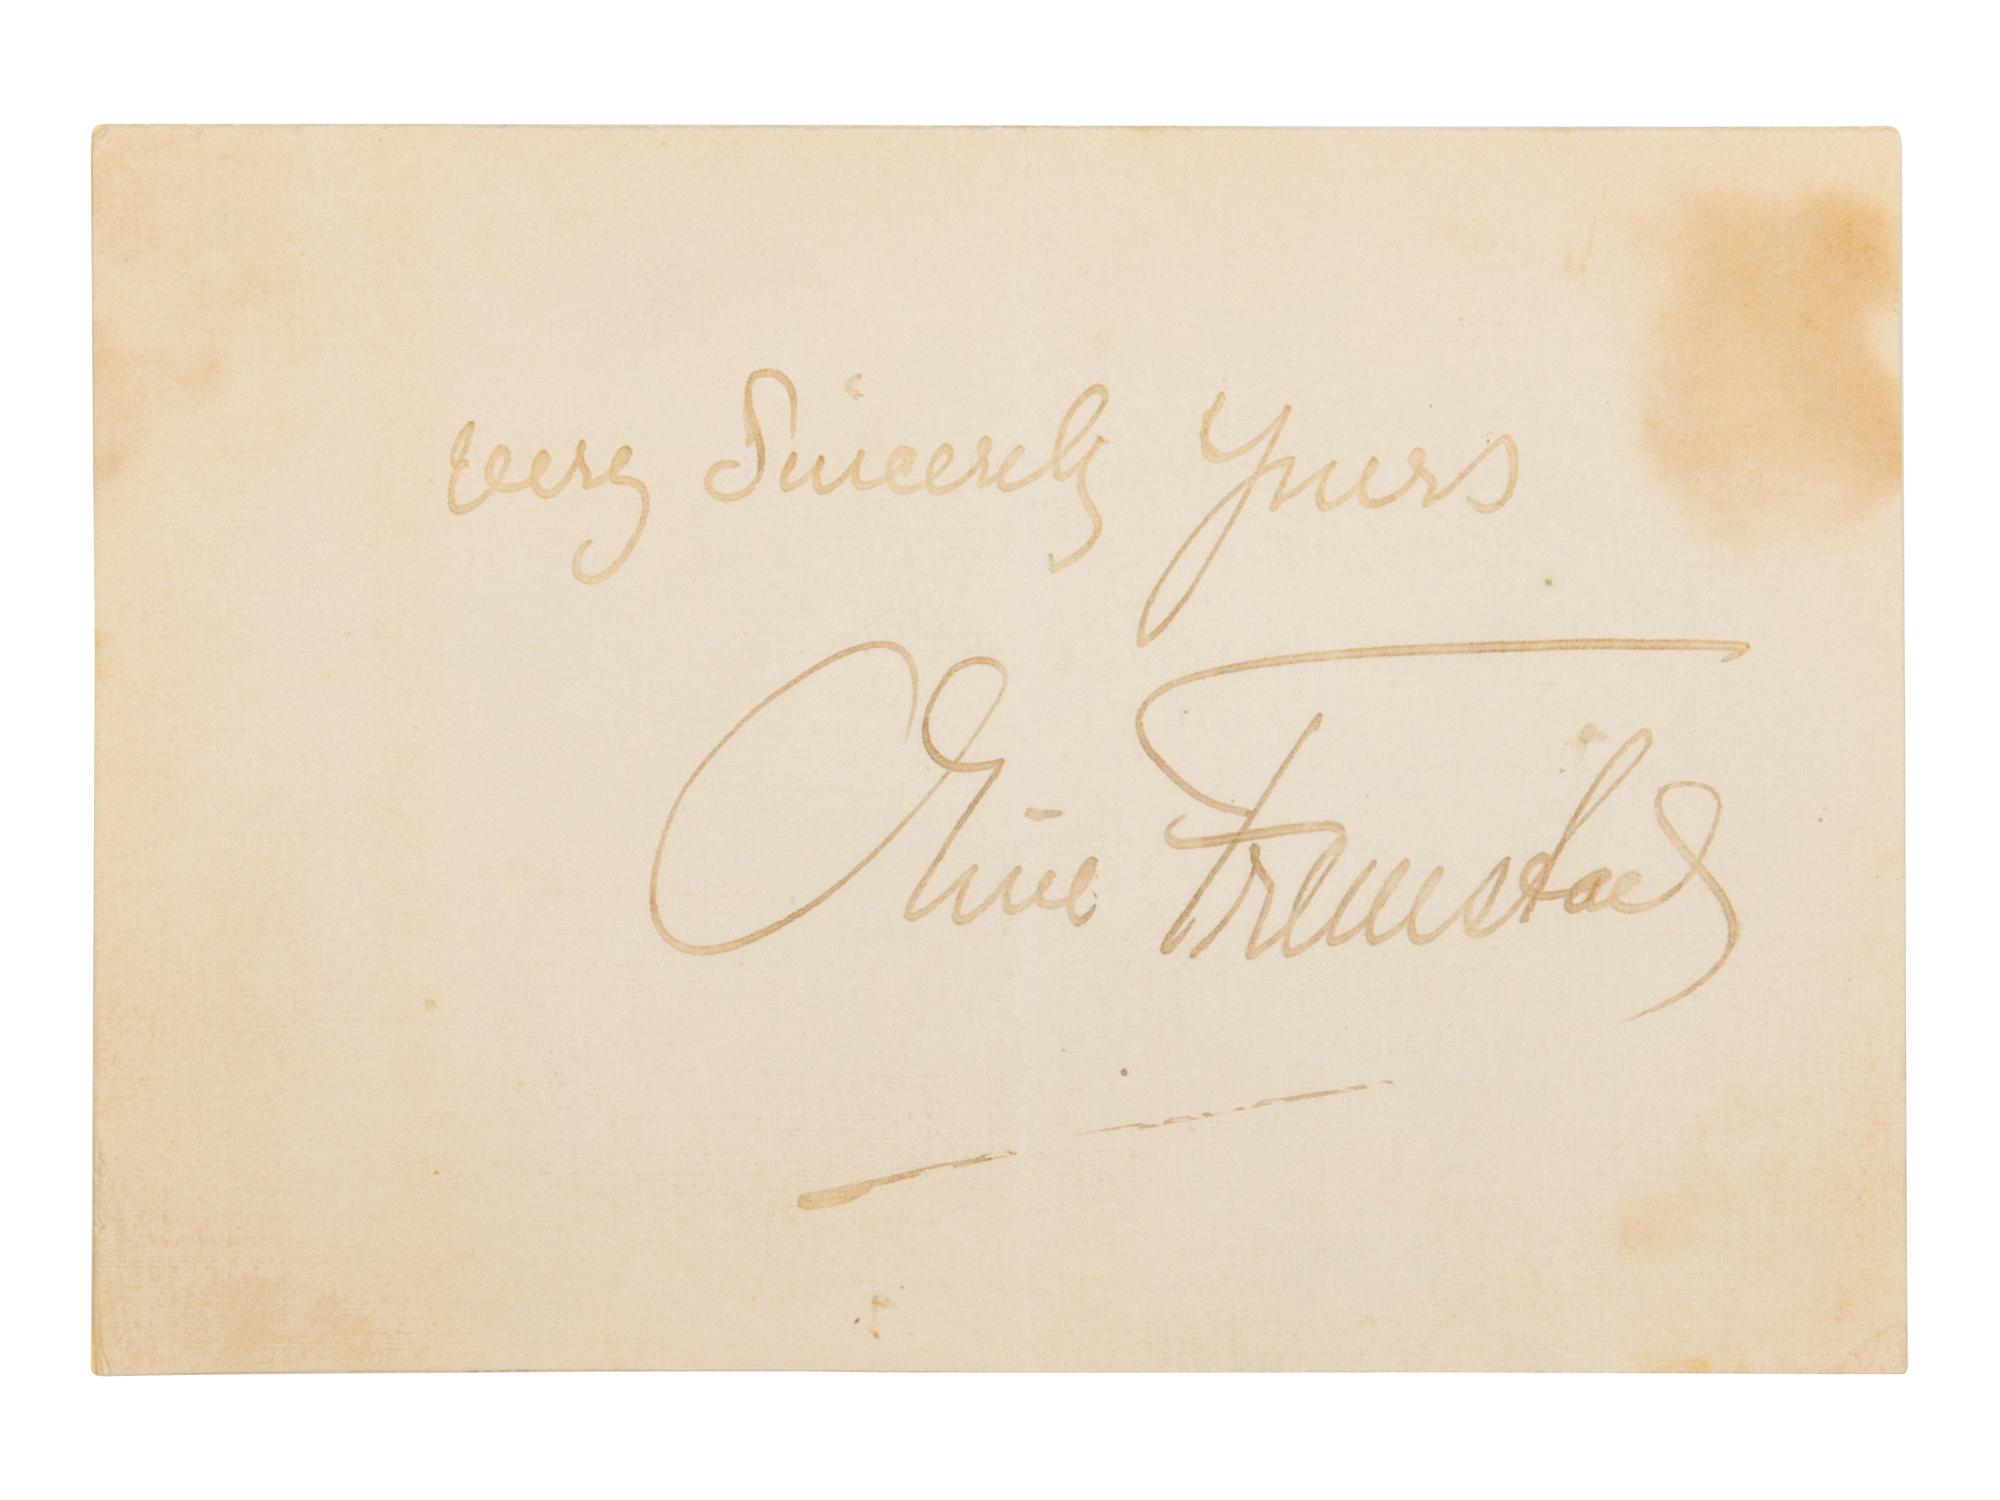 Very Sincerely Yours
Olive Fremstad